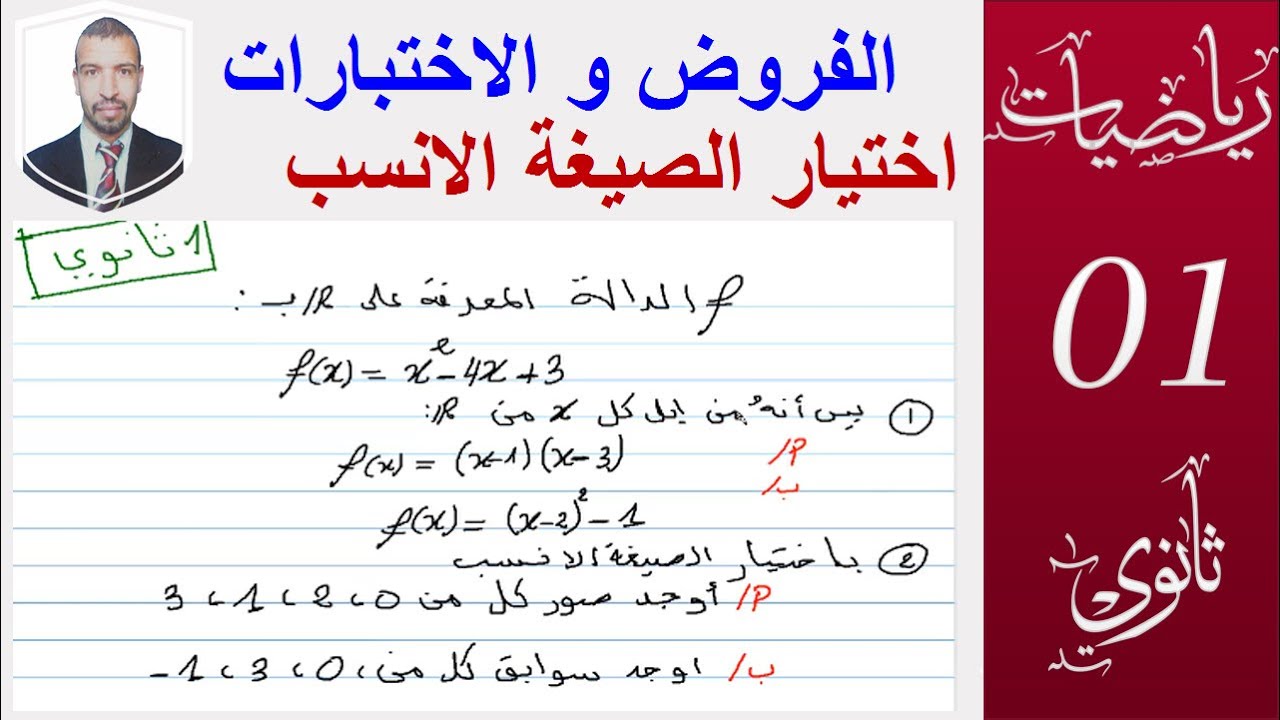 الفروض و الاختبارات
اختيار الصيغة الانسب
1 ثانوي
f الدالة المعرفة على IR بـ :
f(x) = x² - 4x + 3
① بين أنه من اجل كل x من IR:
أ/ f(x) = (x-1)(x-3)
ب/
f(x) = (x-2)² - 1
② باختيار الصيغة الانسب
أ/ أوجد صور كل من 0 ، 2 ، 1 ، 3
ب/ اوجد سوابق كل من ، 0 ، 3 ، 1-
رياضيات
01
ثانوي